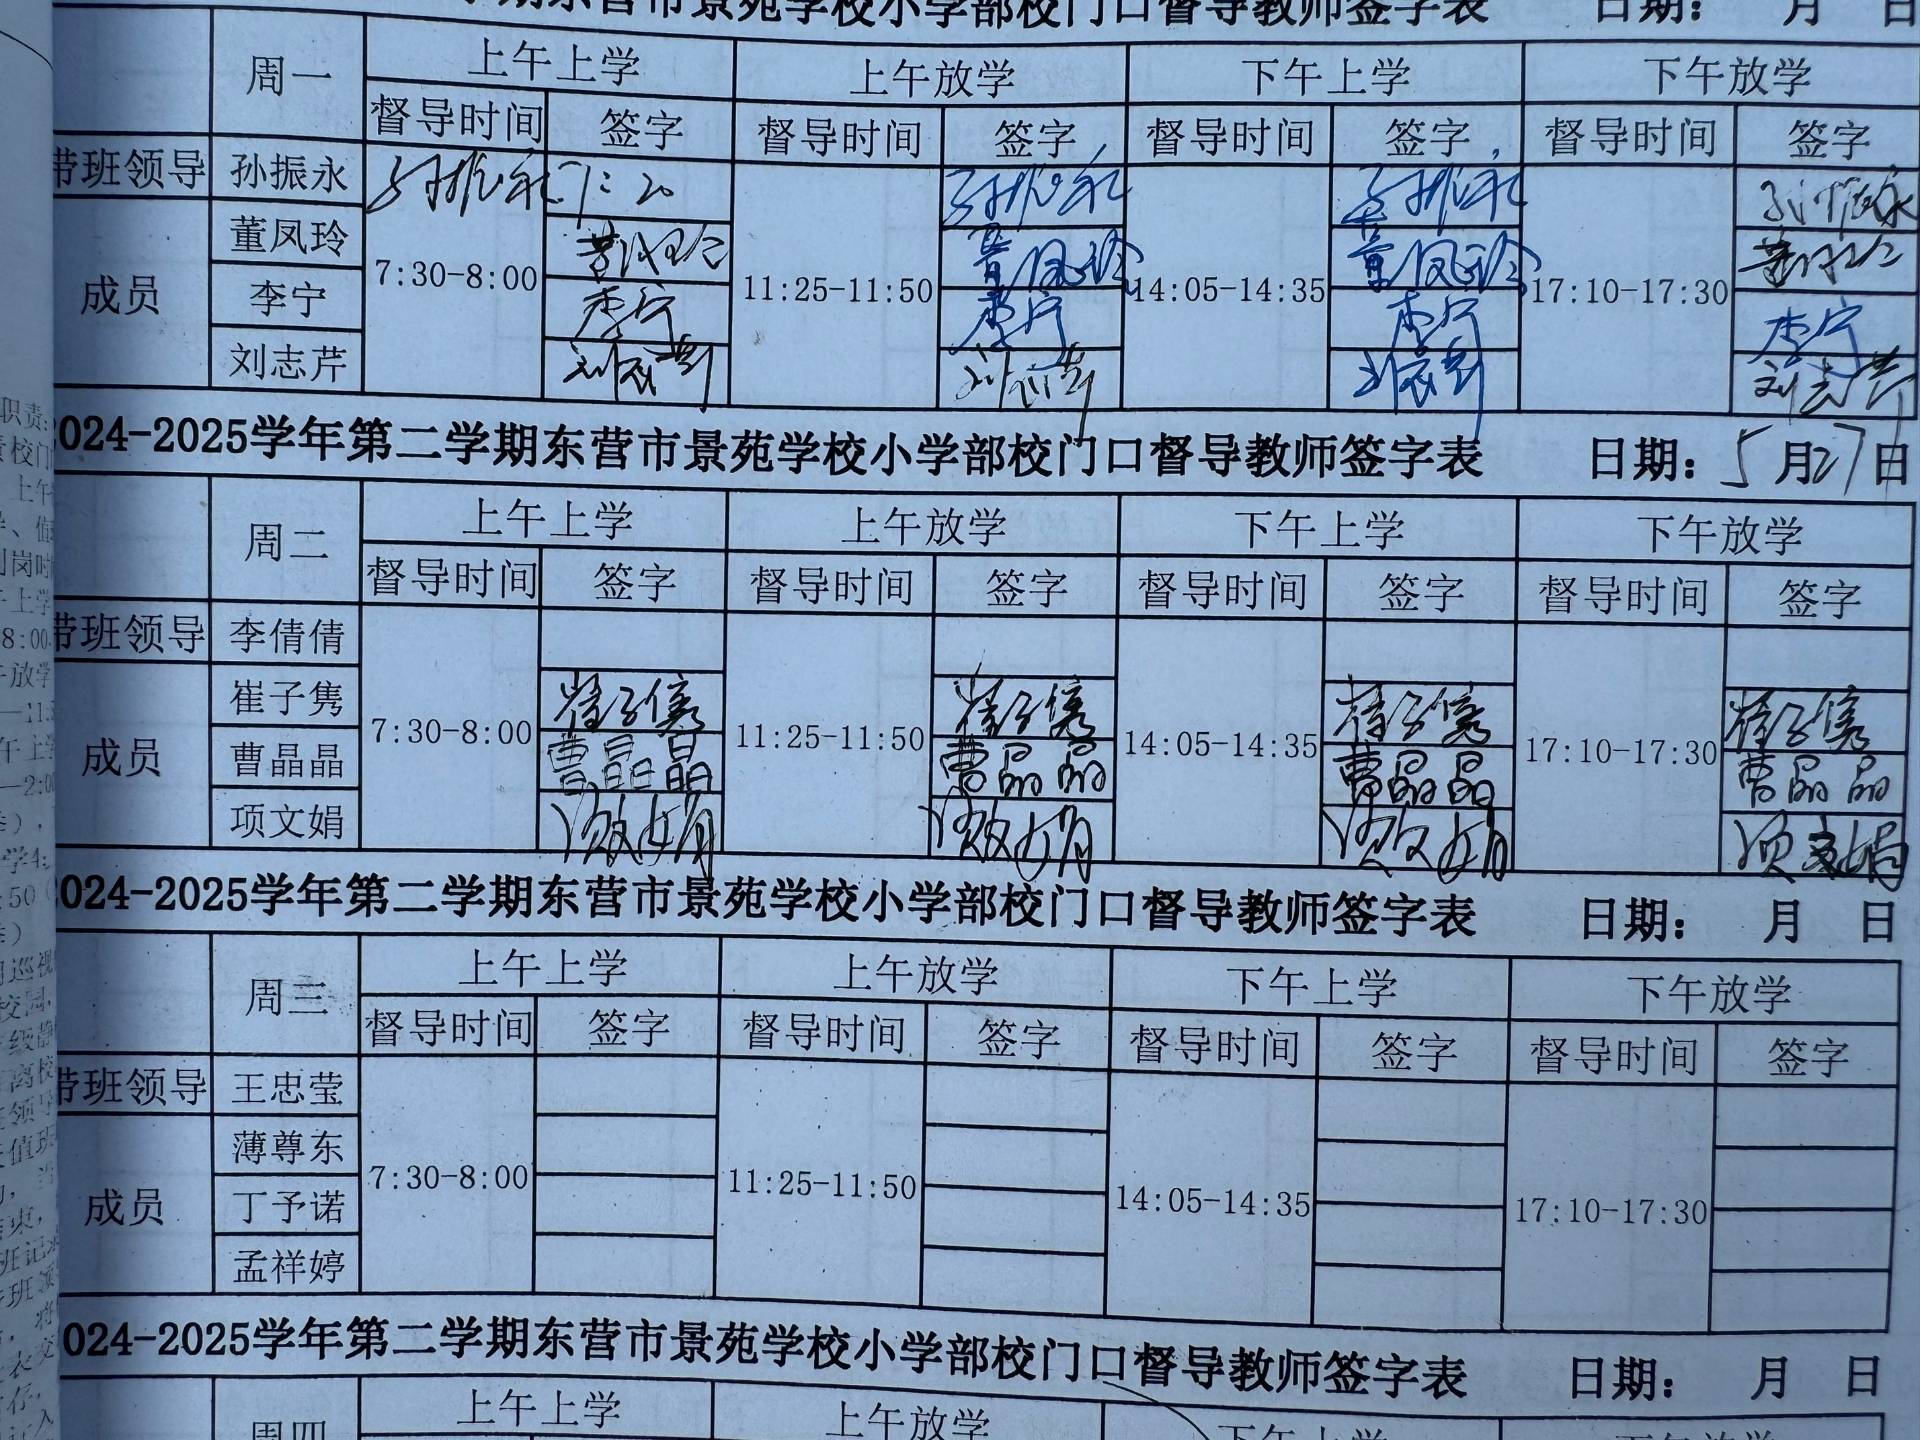 学期东营市景苑学校小学部校门口督导教师签字表 日期: 月 日
周一 上午上学 上午放学 下午上学 下午放学
督导时间 签字 督导时间 签字 督导时间 签字 督导时间 签字
带班领导 孙振永 孙振永 7:20 孙振永 孙振永 孙振永
成员 董凤玲 7:30-8:00 董凤玲 11:25-11:50 董凤玲 14:05-14:35 董凤玲 17:10-17:30 董凤玲
李宁 李宁 李宁 李宁 李宁
刘志芹 刘志芹 刘志芹 刘志芹 刘志芹
024-2025学年第二学期东营市景苑学校小学部校门口督导教师签字表 日期: 5月27日
周二 上午上学 上午放学 下午上学 下午放学
督导时间 签字 督导时间 签字 督导时间 签字 督导时间 签字
带班领导 李倩倩
成员 崔子隽 7:30-8:00 崔子隽 11:25-11:50 崔子隽 14:05-14:35 崔子隽 17:10-17:30 崔子隽
曹晶晶 曹晶晶 曹晶晶 曹晶晶 曹晶晶
项文娟 项文娟 项文娟 项文娟 项文娟
2024-2025学年第二学期东营市景苑学校小学部校门口督导教师签字表 日期: 月 日
周三 上午上学 上午放学 下午上学 下午放学
督导时间 签字 督导时间 签字 督导时间 签字 督导时间 签字
带班领导 王忠莹
成员 薄尊东 7:30-8:00 11:25-11:50 14:05-14:35 17:10-17:30
丁予诺
孟祥婷
024-2025学年第二学期东营市景苑学校小学部校门口督导教师签字表 日期: 月 日
周四 上午上学 上午放学 下午上学 下午放学